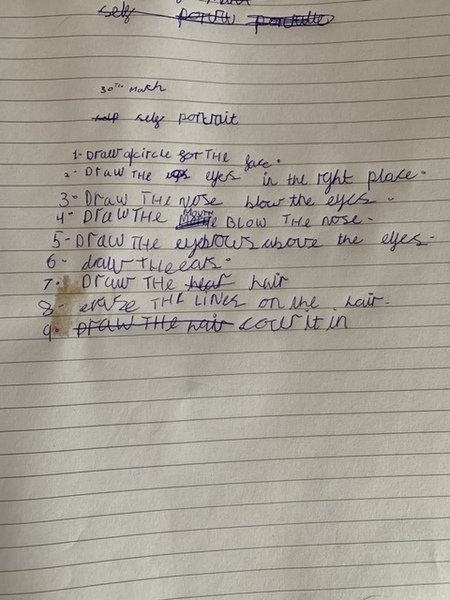 self portrait
30TH March
self self portrait
1- Draw a circle for THE face.
2- Draw THE eyes in the right place.
3- Draw THE nose blow the eyes.
4- Draw THE MOUTH BLOW THE nose.
5- Draw THE eyebrows above the eyes.
6- draw THE ears.
7- Draw THE hear hair
8- erase THE LINES on the hair.
9- Draw THE hair colur it in